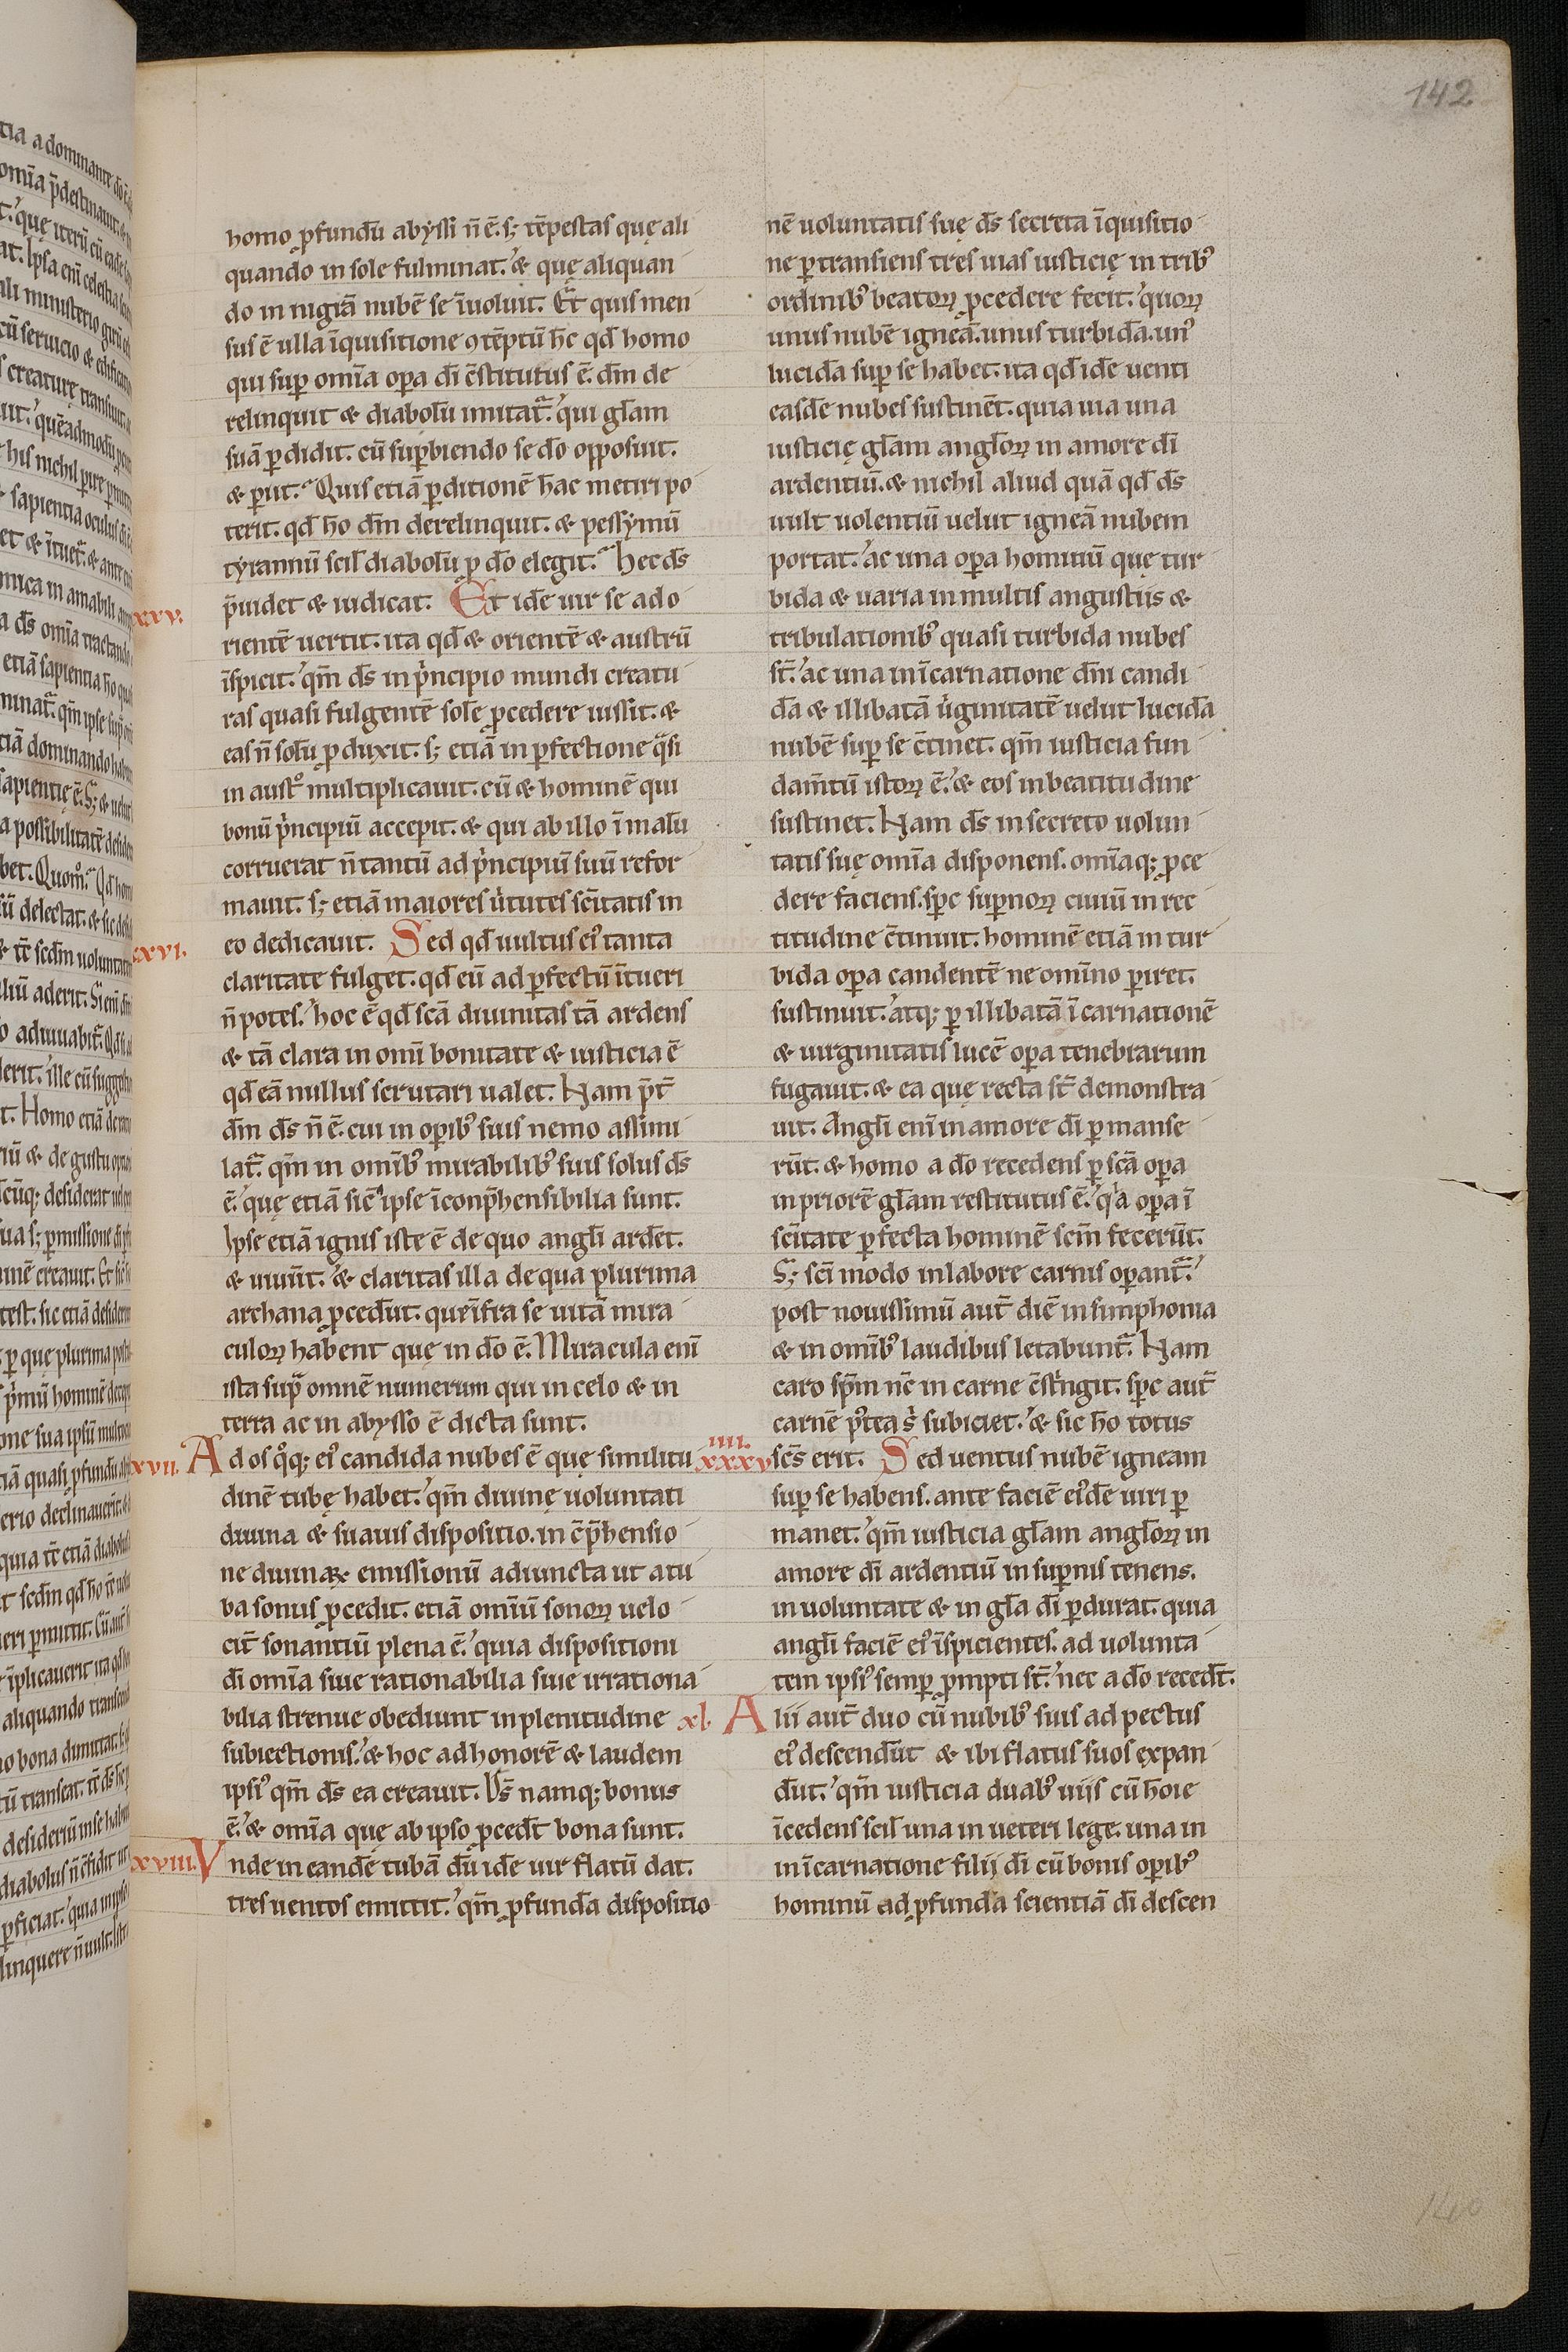 142
homo ꝓfundū abyssi n̄ ē. s; tēpestas quę ali
quando in sole fulminat.' & quę aliquan
do in nigrā nubē se īuoluit. Et quis men
sus ē ulla īquisitione ꝯtēptū h̄c qd̄ homo
qui suꝑ om̄ia oꝑa dī c̄stitutus ē. dm̄ de
relinquit & diabolū imitat᷑.' qui gl̄am
suā ꝑdidit. cū suꝑbiendo se dō opposuit.
& ꝑiit. Quis etiā ꝑditionē hāc metiri po
terit. qd̄ hō dm̄ derelinquit. & pessymū
tyrannū scił diabolū ꝓ dō elegit. Hec ds̄
p̄uidet & iudicat. Et idē uir se ad o
xxv.
rientē uertit. ita qd̄ & orientē & austrū
īspicit.' qm̄ ds̄ in p'ncipio mundi creatu
ras quasi fulgentē solē ꝓcedere iussit. &
eas n̄ solū ꝓduxit. s; etiā in ꝑfectione q̄si
in austᵒ multiplicauit. cū & hominē qui
bonū p'ncipiū accepit. & qui ab illo ī malū
corruerat n̄ tantū ad p'ncipiū suū refor
mauit. s; etiā maiores u'tutes sc̄itatis in
eo dedicauit. Sed qd̄ uultus ei᾽ tanta
xxvi.
claritate fulget. qd̄ eū ad ꝑfectū ītueri
n̄ potes.' hoc ē qd̄ scā diuinitas tā ardens
& tā clara in omī bonitate & iusticia ē
qd̄ eā nullus scrutari ualet. Nam p̄t
dm̄ ds̄ n̄ ē. cui in oꝑib᾽ suis nemo assimi
lat᷑. qm̄ in omīb᾽ mirabilib᾽ suis solus ds̄
ē.' quę etiā sic̄ ipse īconp̄hensibilia sunt.
Ipse etiā ignis iste ē de quo angl̄i ardēt.
& uiuūt.' & claritas illa de qua plurima
archana ꝓcedūt. que īfra se uitā mira
culoꝝ habent quę in dō ē. Miracula enī
ista sup᷑ omnē numerum qui in celo & in
terra ac in abysso ē dicta sunt.
xvii. Ad os q°q; ei᾽ candida nubes ē quę similitu
dinē tubę habet.' qm̄ diuinę uoluntati
diuina & suauis dispositio. in c̄p̄hensio
ne diuinaꝝ emissionū adiuncta ut a tu
ba sonus ꝓcedit. etiā omīū sonoꝝ uelo
cit̄ sonantiū plena ē.' quia dispositioni
dī om̄ia siue rationabilia siue irrationa
bilia strenue obediunt in plenitudine
subiectionis.' & hoc ad honorē & laudem
ipsi᾽ qm̄ ds̄ ea creauit. Ds̄ namq; bonus
ē.' & om̄ia quę ab ipso ꝓcedt̄ bona sunt.
xviii. Vnde in eandē tubā dū idē uir flatū dat.
tres uentos emittit.' qm̄ ꝓfunda dispositio
nē uoluntatis suę ds̄ secreta īquisitio
ne ꝑtransiens tres uias iusticię in trib᾽
ordinib᾽ beatoꝝ ꝓcedere fecit.' quoꝝ
unus nubē igneā. unus turbidā. un᾽
lucidā suꝑ se habet. ita qd̄ idē uenti
easdē nubes sustinēt. quia uia una
iusticię gl̄am angl̄oꝝ in amore dī
ardentiū. & nichil aliud quā qd̄ ds̄
uult uolentiū uelut igneā nubem
portat.' ac una oꝑa hominū que tur
bida & uaria in multis angustiis &
tribulationib᾽ quasi turbida nubes
st̄.' ac una in īcarnatione dn̄i candi
dā & illibatā u'ginitatē uelut lucidā
nubē suꝑ se c̄tinet. qm̄ iusticia fun
dam̄tū istoꝝ ē.' & eos in beatitudine
sustinet. Nam ds̄ in secreto uolun
tatis suę om̄ia disponens. om̄iaq; ꝓce
dere faciens. spc̄ suꝑnoꝝ ciuiū in rec
titudine c̄tinuit. hominē etiā in tur
bida oꝑa candentē ne omīno ꝑiret.
sustinuit.' atq; ꝑ illibatā īcarnationē
& uirginitatis lucē oꝑa tenebrarum
fugauit. & ea quę recta st̄ demonstra
uit. Angl̄i enī in amore dī ꝑmanse
rūt. & homo a dō recedens ꝑ scā oꝑa
in priorē gl̄am restitutus ē.' q'a oꝑa ī
sc̄itate ꝑfecta hominē scm̄ fecerūt.
S; scī modo in labore carnis oꝑant᷑.'
post nouissimū aut̄ diē in simphonia
& in omīb᾽ laudibus letabunt᷑. Nam
caro spm̄ nc̄ in carne c̄st'ngit. spc̄ aut̄
carnē p᾽tea s' subiciet.' & sic hō totus
xxxviiii. sc̄s erit. Sed uentus nubē igneam
suꝑ se habens. ante faciē ei᾽dē uiri ꝑ
manet.' qm̄ iusticia gl̄am angl̄oꝝ in
amore dī ardentiū in suꝑnis tenens.
in uoluntate & in gl̄a dī ꝑdurat. quia
angl̄i faciē ei᾽ īspicientes. ad uolunta
tem ipsi᾽ semꝑ ꝓmpti st̄.' nec a dō recedt̄.
xl. Alii aut̄ duo cū nubib᾽ suis ad pectus
ei᾽ descendūt & ibi flatus suos expan
dūt.' qm̄ iusticia duab᾽ uiis cū hōie
īcedens scił una in ueteri lege. una in
in īcarnatione filii dī cū bonis oꝑib᾽
hominū ad ꝓfunda scientiā dī descen
140